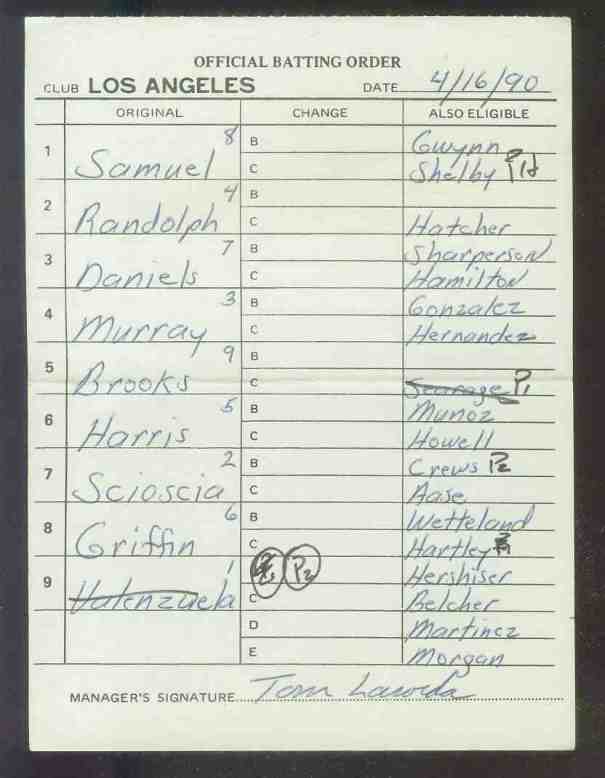 OFFICIAL BATTING ORDER
CLUB LOS ANGELES DATE 4/16/90
ORIGINAL CHANGE ALSO ELIGIBLE
1 Samuel 8 B Gwynn
C Shelby PH
2 Randolph 4 B
C Hatcher
3 Daniels 7 B Sharperson
C Hamilton
4 Murray 3 B Gonzalez
C Hernandez
5 Brooks 9 B
C Searage P1
6 Harris 5 B Munoz
C Howell
7 Scioscia 2 B Crews P2
C Aase
8 Griffin 6 B Wetteland
C Hartley
9 Valenzuela 1 P2 Hershiser
C Belcher
D Martinez
E Morgan
MANAGER'S SIGNATURE Tom Lasorda